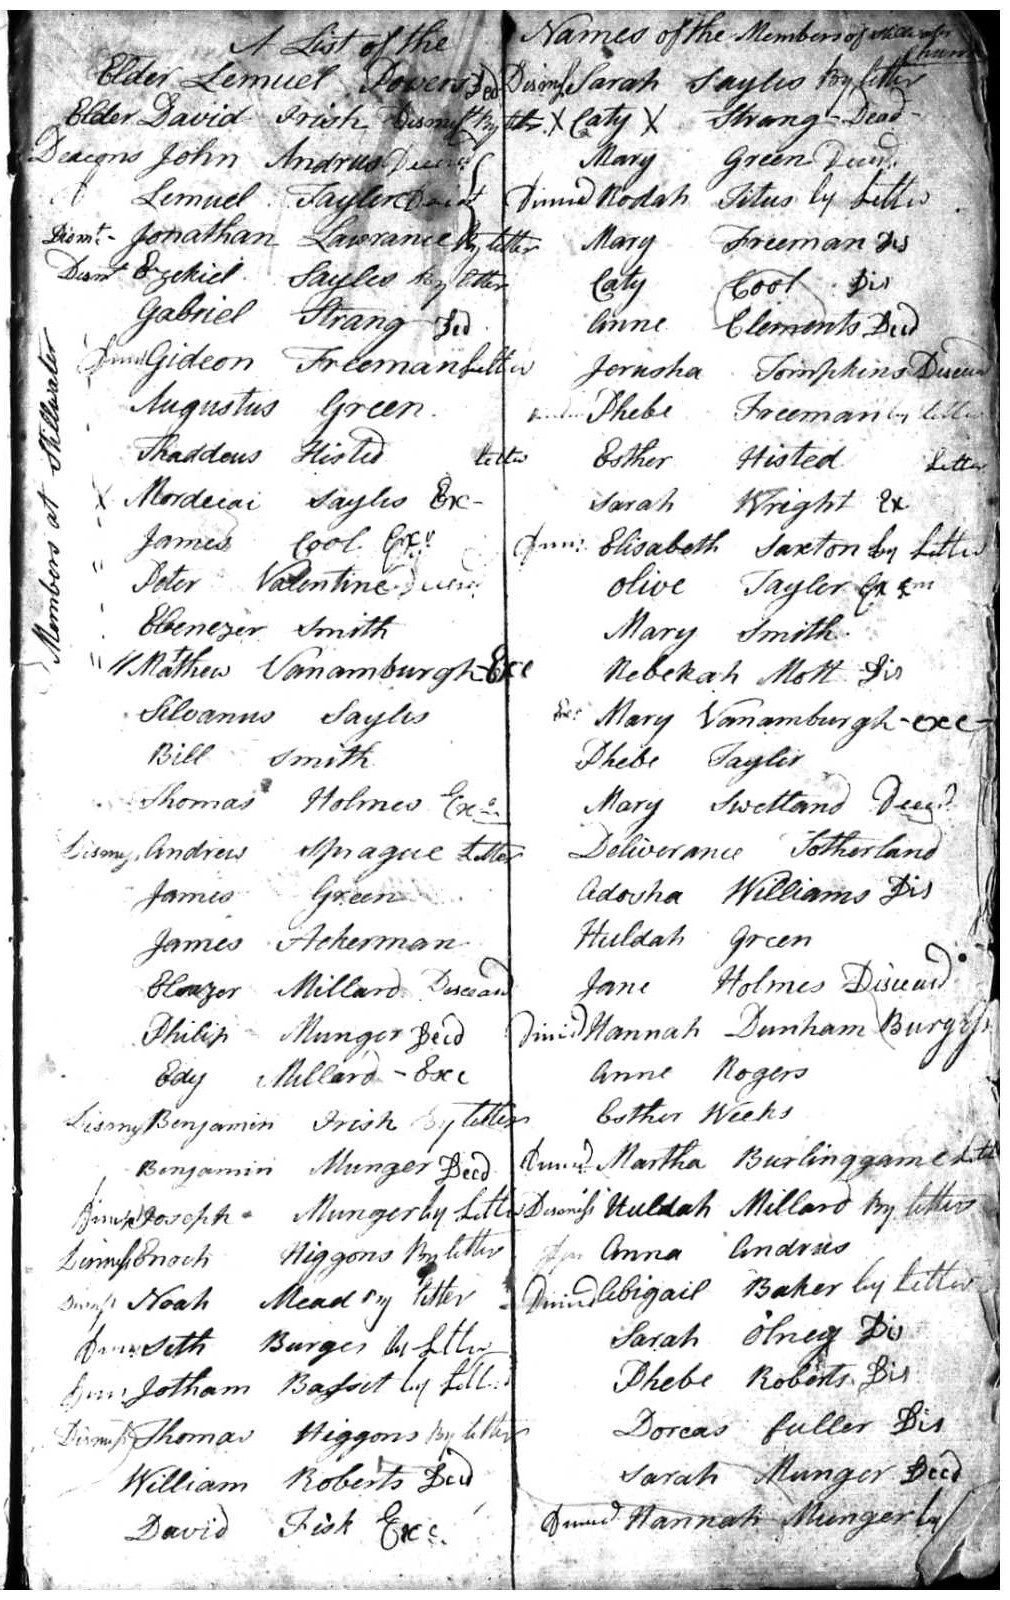 A List of the Names of the Members of
Elder Lemuel Powers Ded
Elder David Irish Dismist by letter
Deacons John Andrus
Lemuel Tayler
Dismt - Jonathan Lawrance By letter
Dismt Ezekiel Sayles By letter
Gabriel Strang Ded
Gideon Freeman Letter
Augustus Green
Thaddeus Histed letter
X Mordecai Sayles Ex-
James Cool Exc
Peter Valentine
Ebenezer Smith
" Mathew Vanamburgh - Exc
Silvanus Sayles
Bill Smith
Thomas Holmes Exc
Dismis Andrew Sprague Letter
James Green
James Ackerman
Eleazer Millard Deceasd
Philip Munger Decd
Edy Millard - Exc
Dismis Benjamin Irish By letter
Benjamin Munger Decd
Joseph Munger by Letter
Dismiss Enoch Higgons By letter
Dismis Noah Mead By letter
Seth Burges by Letter
Jotham Basset by Letter
Dismiss Thomas Higgons By letter
William Roberts Decd
David Fisk Exc.
Members at Stillwater
Dismiss Sarah Sayles By letter
X Caty X Strang - Dead -
Mary Green Decd.
Dimied Rodah Titus by Letter
Mary Freeman Dis
Caty Cool Dis
Anne Clements Ded
Jerusha Tompkins Diseasd
Phebe Freeman by letter
Esther Histed Letter
Sarah Wright Ex
Elisabeth Saxton by Letter
Olive Tayler
Mary Smith
Rebekah Mott Dis
Exc Mary Vanamburgh - exc -
Phebe Tayler
Mary Swetland Decd
Deliverance Sotherland
Adosha Williams Dis
Huldah Green
Jane Holmes Diseasd
Dimied Hannah Dunham Burgess
Anne Rogers
Esther Weeks
Dimied Martha Burlinggame Let
Dismiss Huldah Millard By letter
Anna Andrus
Dimied Abigail Baker by Letter
Sarah Olney Dis
Phebe Roberts Dis
Dorcas Fuller Dis
Sarah Munger Decd
Dimied Hannah Munger by